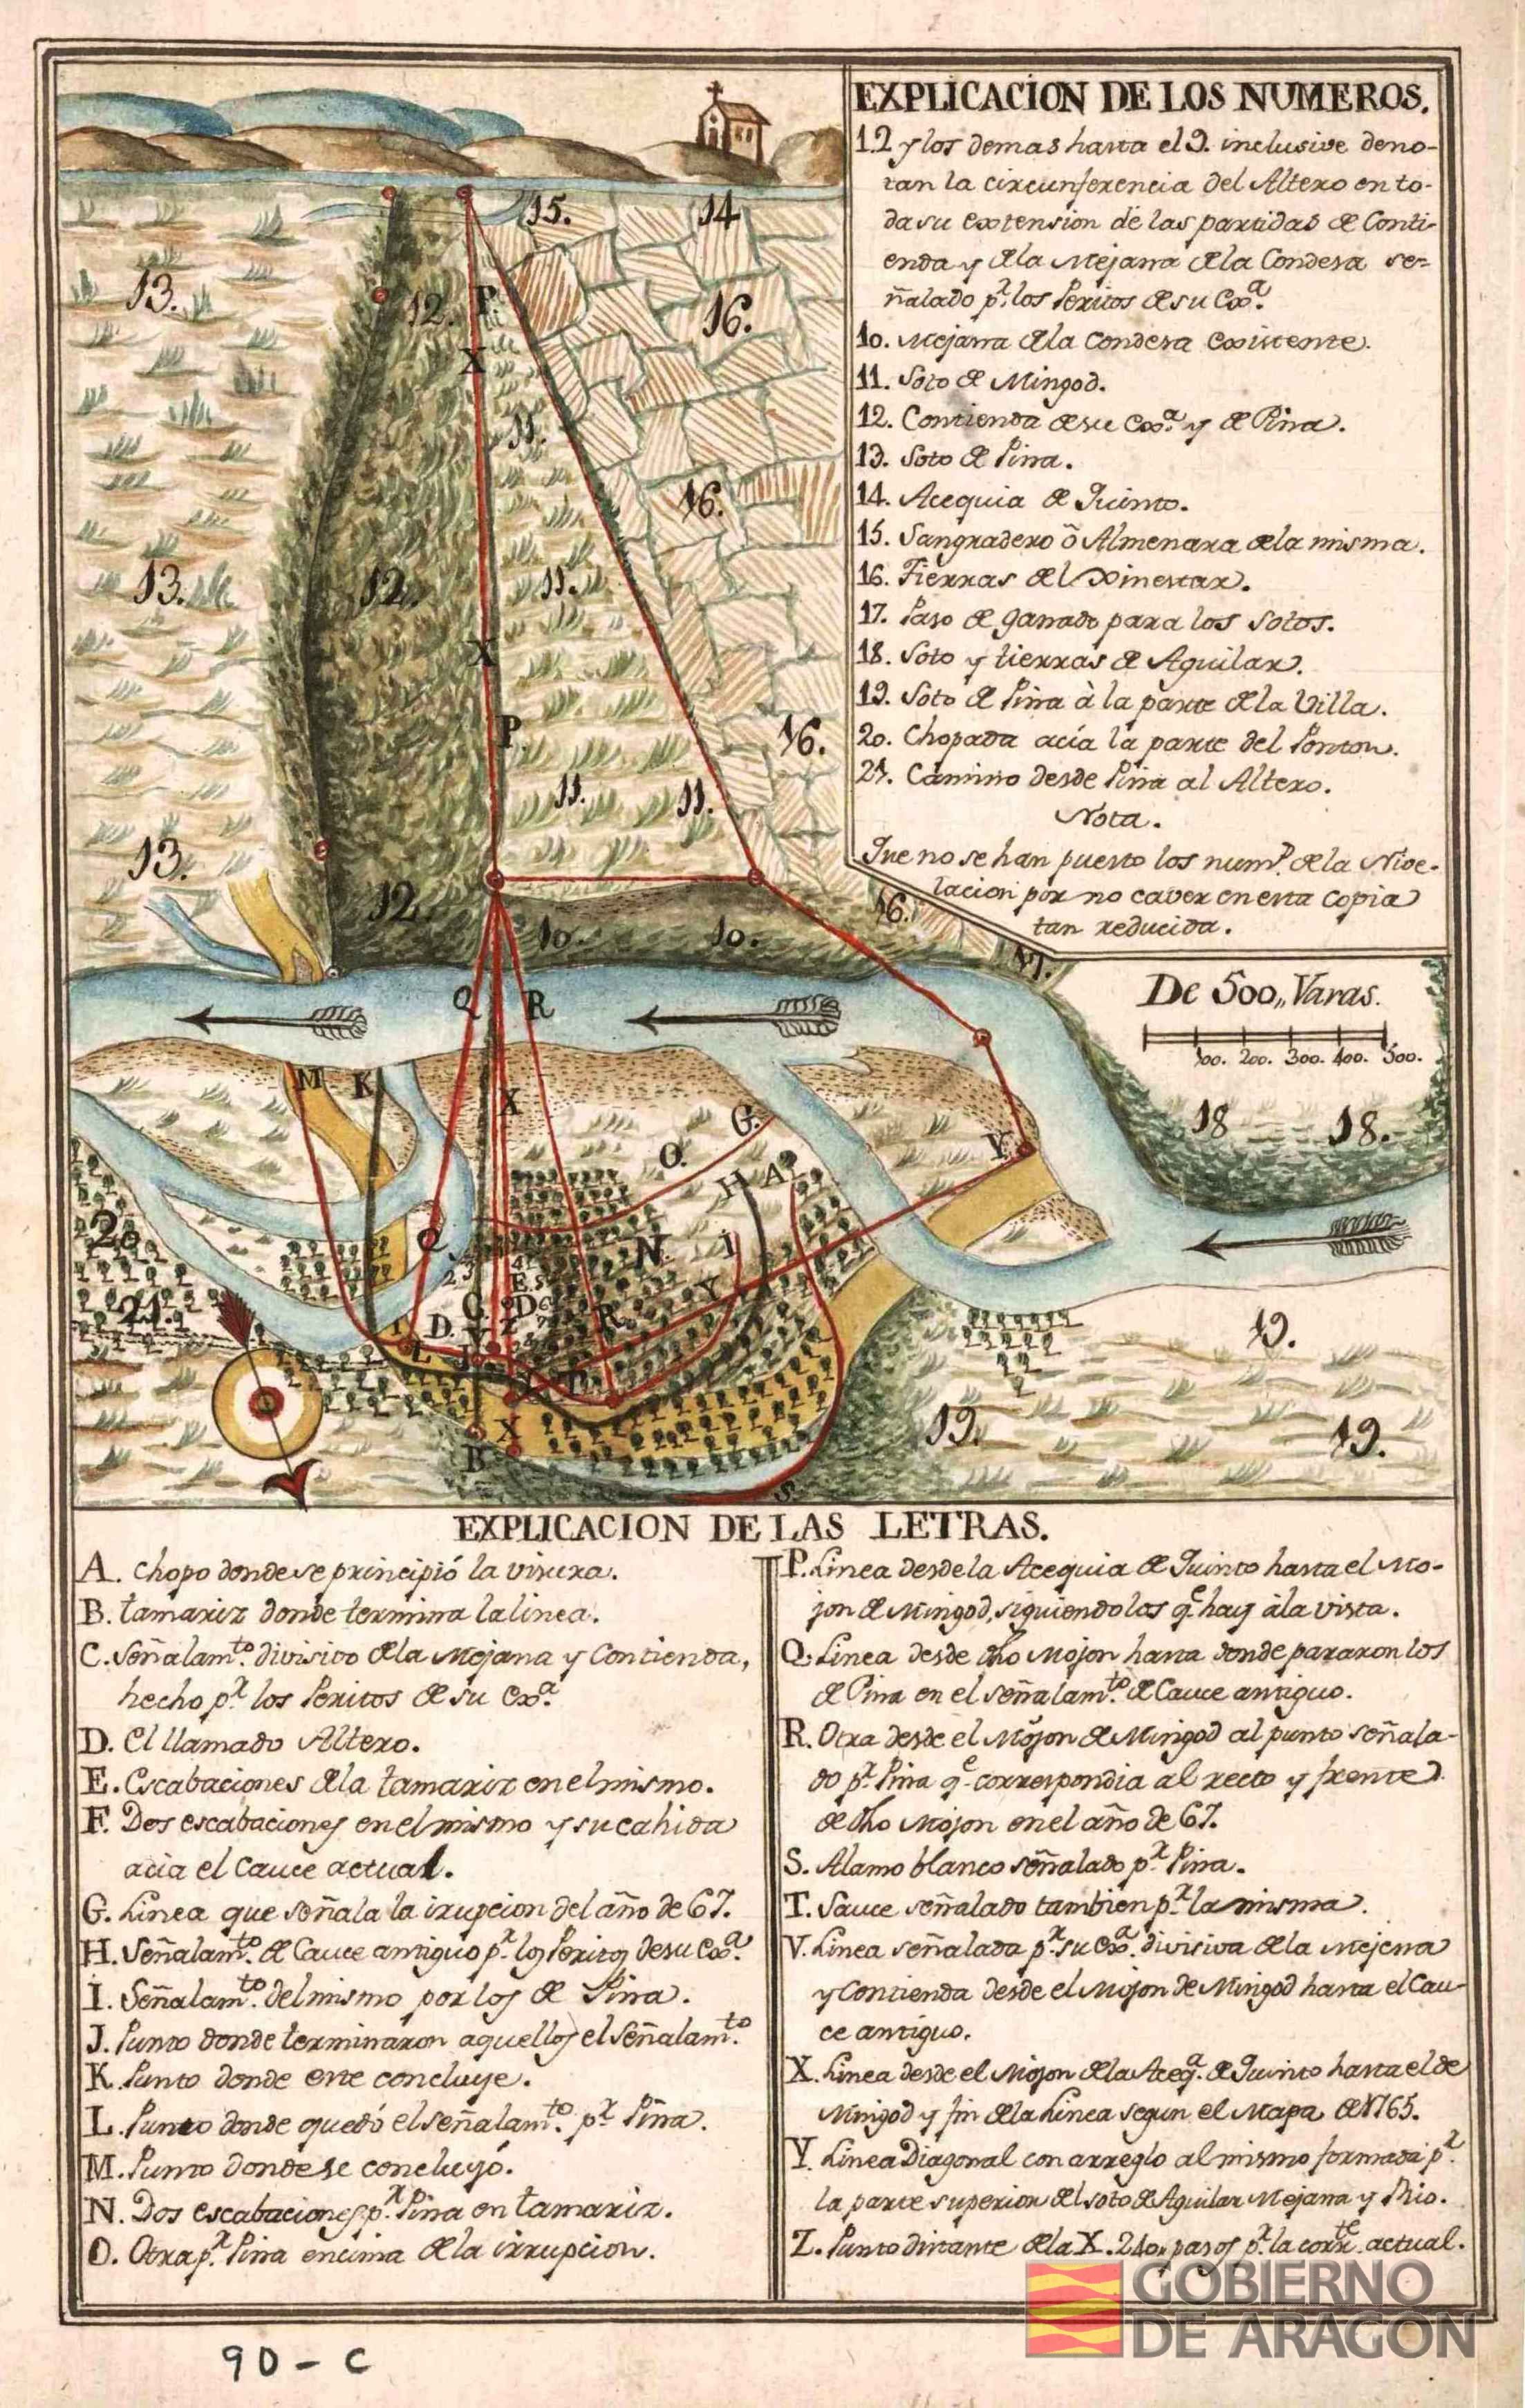 EXPLICACION DE LOS NUMEROS.
1.2 y los demas hasta el 9. inclusive deno-
tan la circunferencia del Altero en to-
da su extension de las partidas de Conti-
enda y de la Mejana de la Condesa se=
ñalado pr. los Peritos de su Exa.
10. Mejana de la Condesa Existente.
11. Soto de Mingod.
12. Contienda de su Exa. y de Pina.
13. Soto de Pina.
14. Acequia de Quinto.
15. Sangradero ô Almenara de la misma.
16. Tierras del Xinestar.
17. Paso de ganado para los Sotos.
18. Soto y tierras de Aguilar.
19. Soto de Pina à la parte de la Villa.
20. Chopada acía la parte del Ponton.
21. Camino desde Pina al Altero.
Nota.
Que no se han puesto los nums. de la Nive-
lacion por no caver en esta copia
tan reducida.
De 500,, Varas.
100. 200. 300. 400. 500.
15.
14
13.
12.
P.
16.
X
11.
16.
13.
12.
11.
X
P.
16.
11.
11.
13.
12.
10.
10.
16.
17.
Q
R
M
K
X
G.
O.
18
18.
Y
H
A
20
C
N.
I
2
3
4
E.
5
Y
21.
G.
D
6
Z
R.
D.
V
L
J
T
X
B
S
19.
19.
19.
EXPLICACION DE LAS LETRAS.
A. Chopo donde se principió la visura.
B. tamariz donde termina la linea.
C. Señalamto. divisivo de la Mejana y Contienda,
hecho pr. los Peritos de su Exa.
D. El llamado Altero.
E. Escabaciones de la tamariz en el mismo.
F. Dos escabaciones en el mismo y su cahida
acia el Cauce actual.
G. Linea que señala la irupcion del año de 67.
H. Señalamto. de Cauce antiguo pr. los Peritos de su Exa.
I. Señalamto. del mismo por los de Pina.
J. Punto donde terminaron aquellos el Señalamto.
K. Punto donde este concluye.
L. Punto donde quedó el señalamto. pr. Pina.
M. Punto donde se concluyó.
N. Dos escabaciones pr. Pina en tamariz.
O. Otra pr. Pina encima de la irrupcion.
P. Linea desde la Acequia de Quinto hasta el Mo-
jon de Mingod, siguiendo las qe. hay à la vista.
Q. Linea desde dho Mojon hasta donde pararon los
de Pina en el señalamto. de Cauce antiguo.
R. Otra desde el Mojon de Mingod al punto señala-
do pr. Pina qe. correspondia al recto y frente
de dho Mojon en el año de 67.
S. Alamo blanco señalado pr. Pina.
T. Sauce señalado tambien pr. la misma.
V. Linea señalada pr. su Exa. divisiva de la Mejena
y Contienda desde el Mojon de Mingod hasta el Cau-
ce antiguo.
X. Linea desde el Mojon de la Aceqa. de Quinto hasta el de
Mingod y fin de la Linea segun el Mapa de 1765.
Y. Linea Diagonal con arreglo al mismo formada pr.
la parte superior del soto de Aguilar Mejana y Rio.
Z. Punto distante de la X. 240,, pasos pr. la corrte. actual.
GOBIERNO
DE ARAGON
90 - C